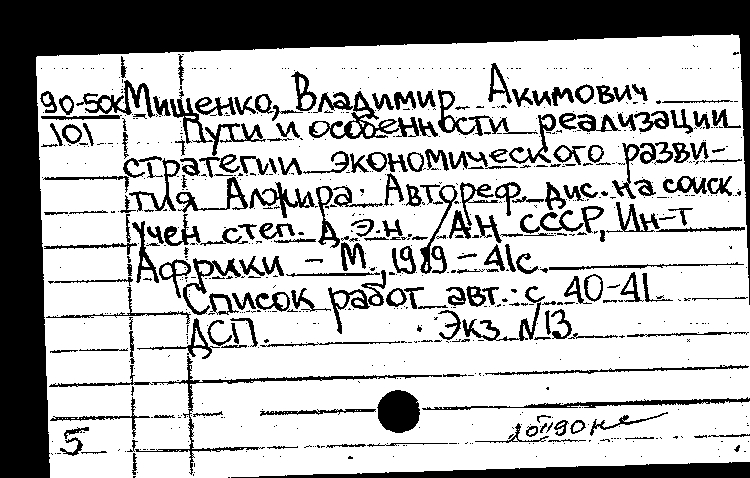 90-50к Мищенко, Владимир Акимович
101 Пути и особенности реализации
стратегии экономического разви-
тия Алжира: Автореф. дис. на соиск.
учен степ. д.э.н. / АН СССР, Ин-т
Африки – М., 1989 – 41с.
Список работ авт.: с 40-41.
ДСП. Экз. N13.
5